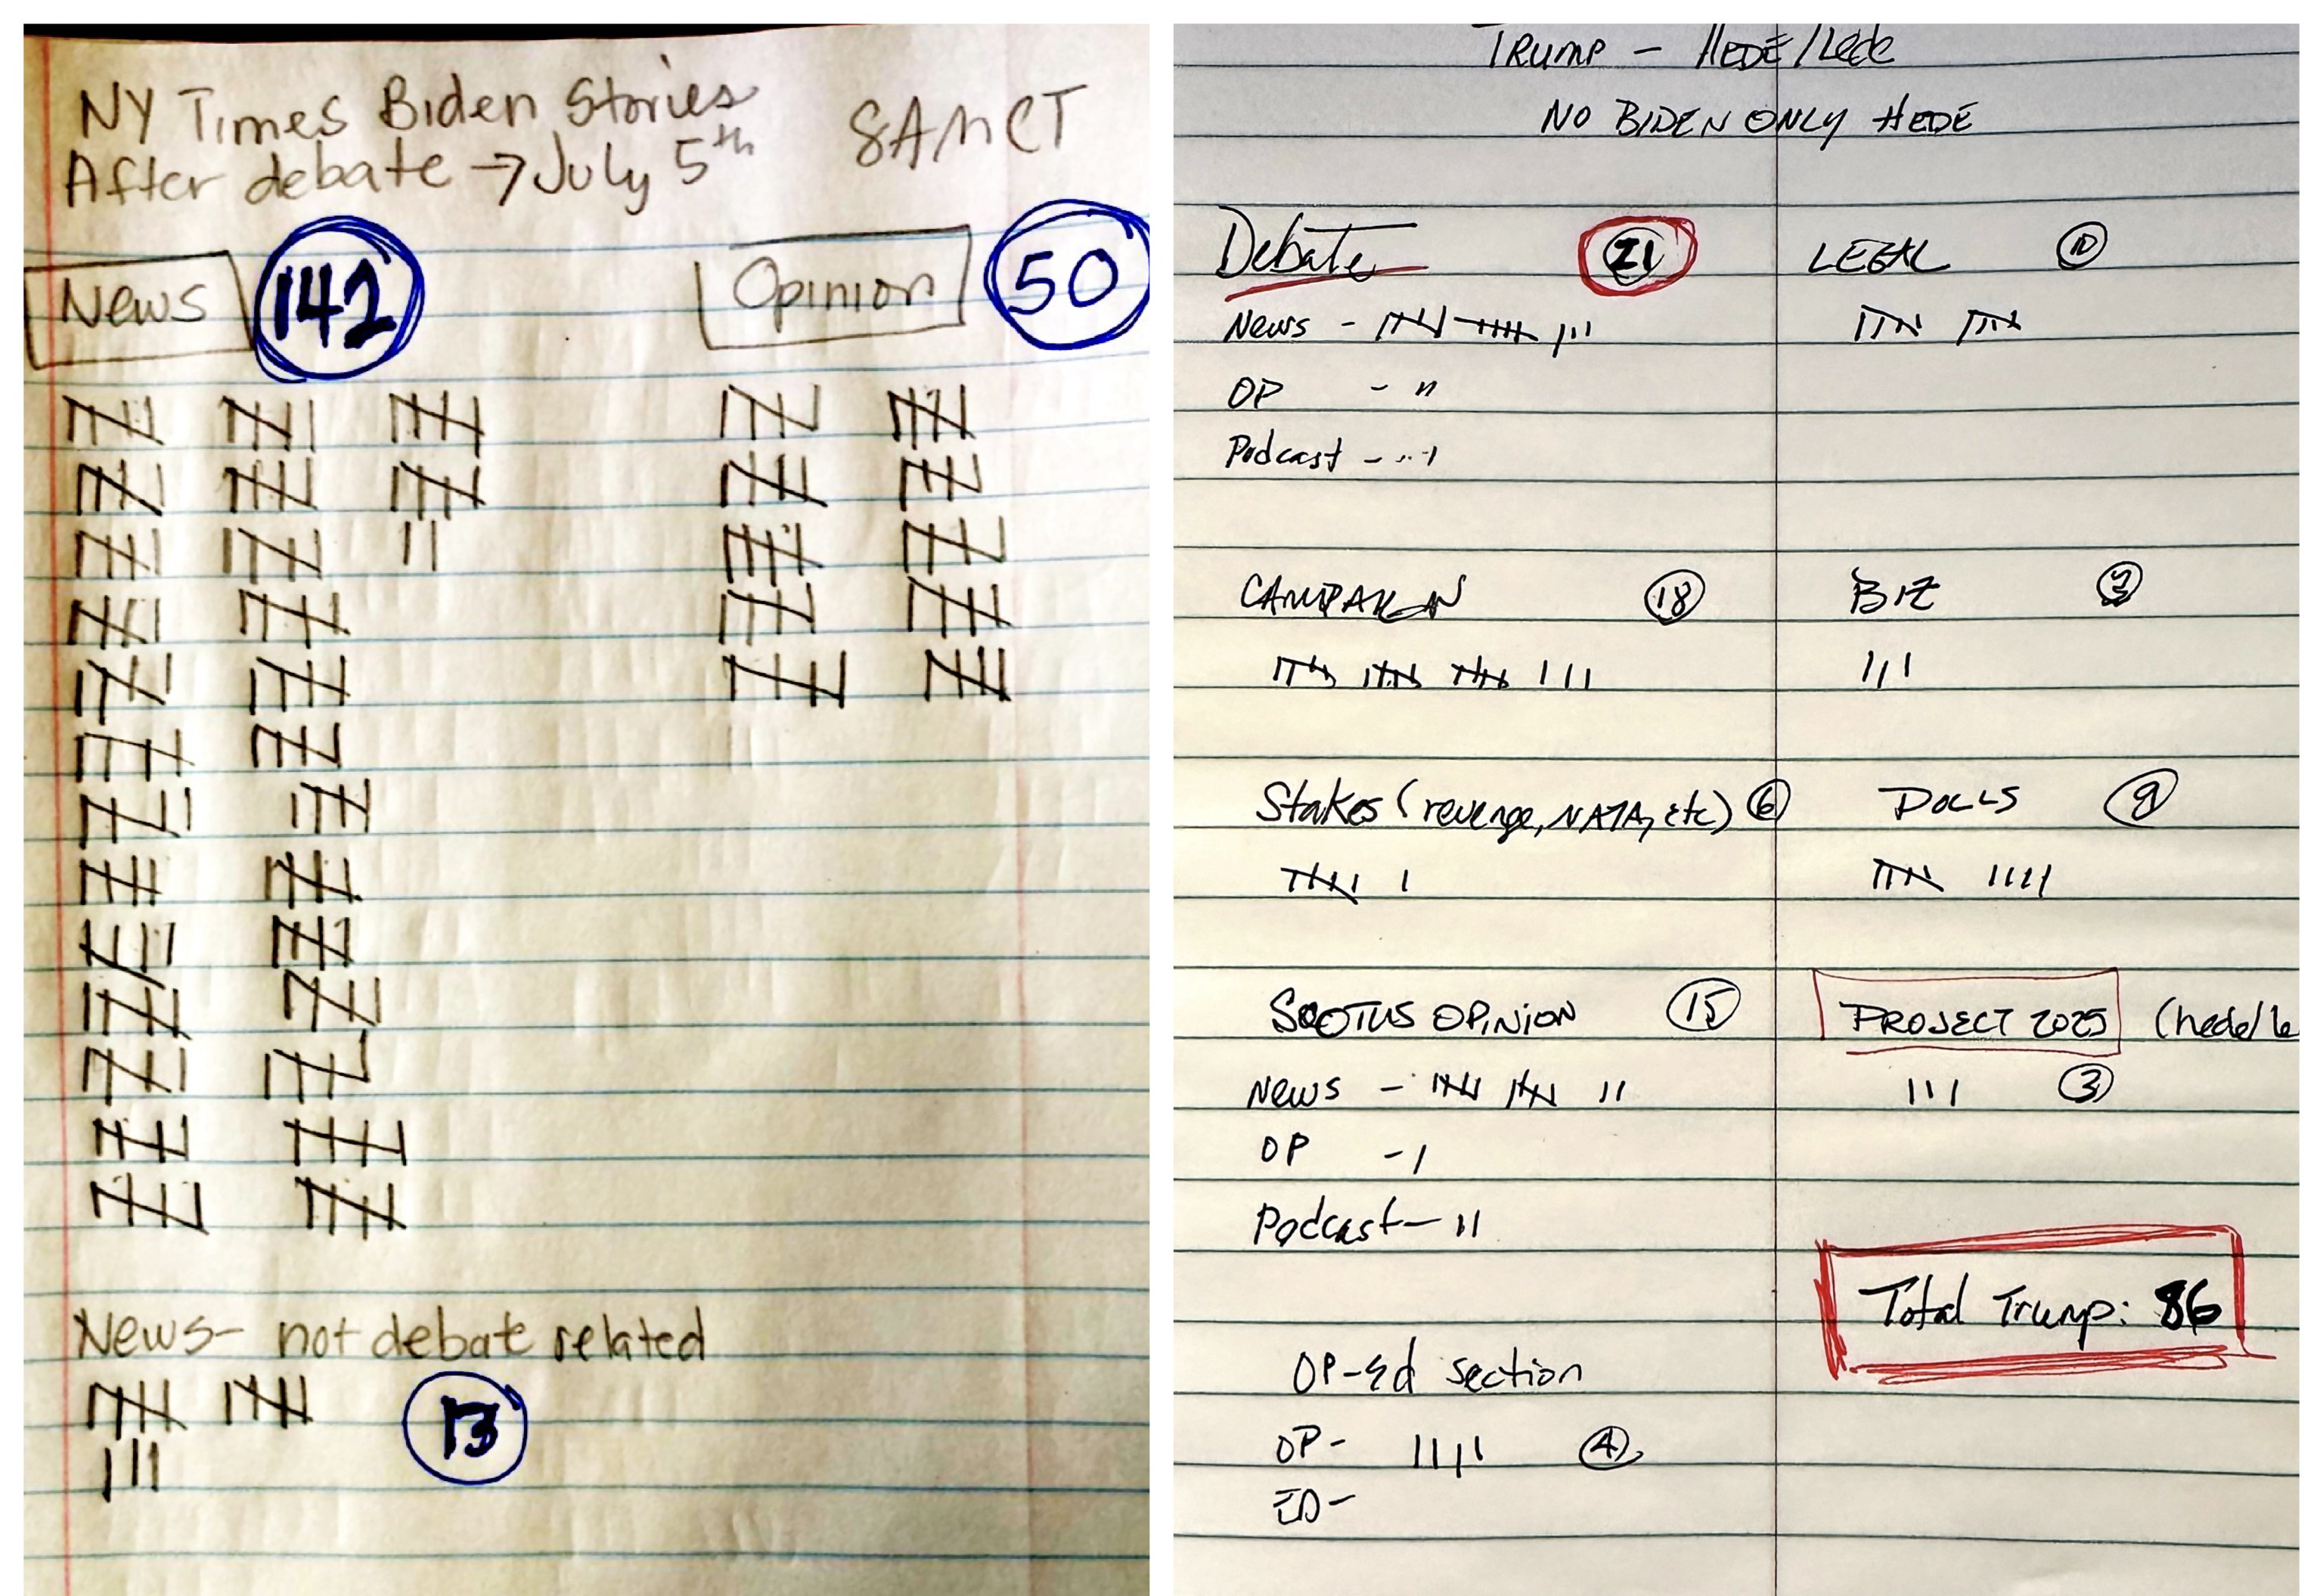 NY Times Biden Stories
After debate → July 5th 8AM CT
News 142
Opinion 50
News - not debate related
13
TRUMP - HEDE/Lede
NO BIDEN ONLY HEDE
Debate 21
News -
OP - "
Podcast -
LEGAL 10
CAMPAIGN 18
BIZ 3
Stakes (revenge, NATA, etc) 6
POLLS 9
SCOTUS OPINION 15
News -
OP -
Podcast -
PROJECT 2025 (hede/le
3
Total Trump: 86
OP-Ed section
OP - 4
ED -